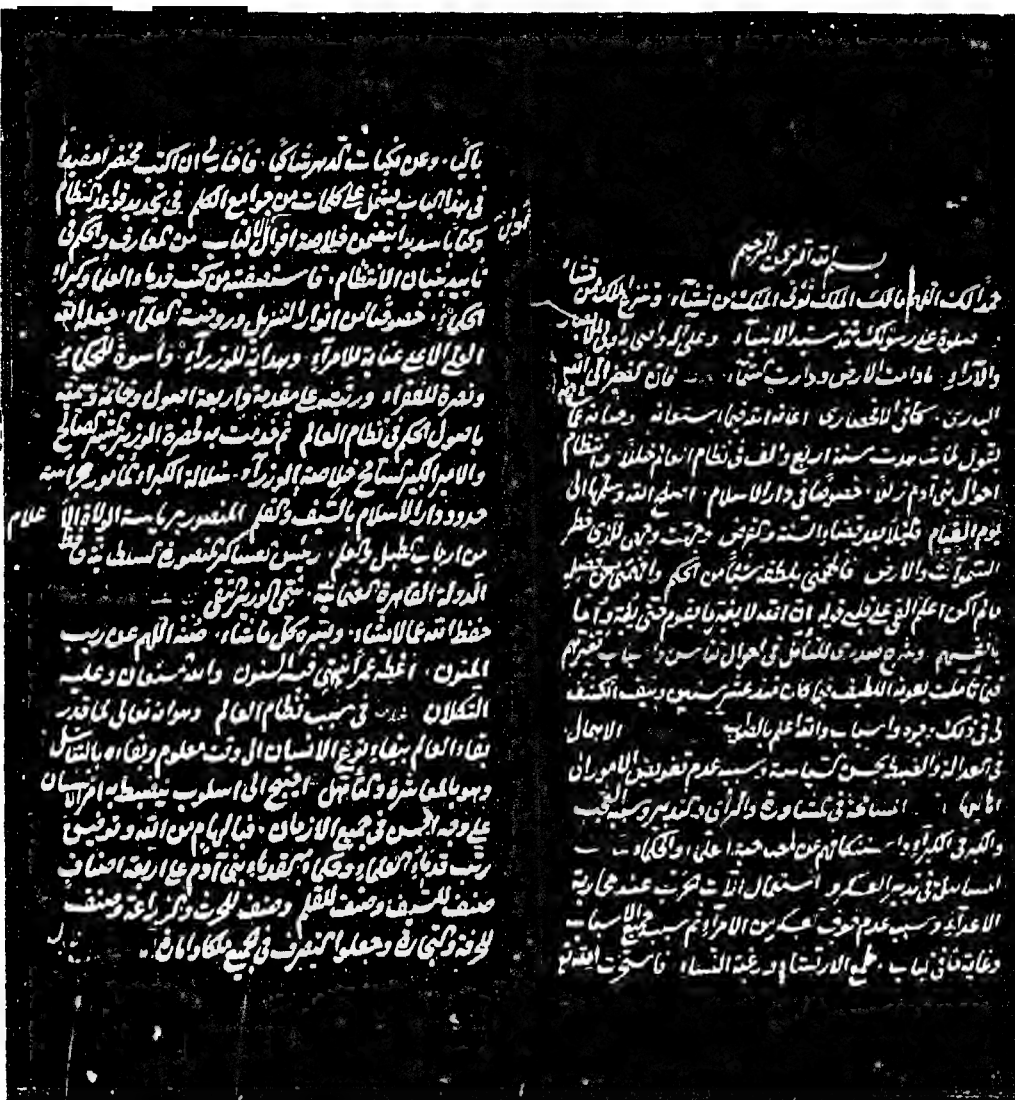 بسم الله الرحمن الرحيم
حمدا لك اللهم يا مالك الملك تؤتي الملك من تشاء وتنزع الملك ممن تشاء
صلوة على رسولك محمد سيد الانبياء وعلى اله واصحابه
والآراء ما دامت الارض ودارت السماء فان الفقير الى الله
كافي الاقحصاري اعانه الله فيما استعانه وصانه عما
يقول لما شاهدت سنة اربع والف في نظام العالم خللا وانتظام
احوال بني آدم زللا خصوصا في دار الاسلام اصلح الله وسلمها الى
يوم القيام فكنت بعد قضاء السنة والفرض وجهت وجهي للذي فطر
السموات والارض فالهمني بلطفه شيئا من الحكم وافهمني من فضله
ما لم اكن اعلم القي على قلبي قوله ان الله لا يغير ما بقوم حتى يغيروا ما
بانفسهم وشرح صدري للتأمل في احوال الناس واسباب تغيرهم
فيما تأملت بعونه اللطيف فيما كان منذ عشر سنين وكيف انكشف
لي في ذلك وجوه واسباب والله اعلم بالصواب الاهمال
في العدالة والضبط بحسن السياسة وسببه عدم تفويض الامور الى
اهاليها المسامحة في المشاورة والرأي والتدبير وسببه العجب
والكبر في الكبراء واستنكافهم عن مصاحبة العلماء والحكماء
المساهلة في تدبير العسكر واستعمال آلات الحرب عند محاربة
الاعداء وسببه عدم خوف العسكر من الامراء ثم سبب جميع الاسباب
وغاية ما في الباب طمع الارتشاء ورغبة النساء فاستخرت الله
باكيا وعن نكبات الدهر شاكيا فافاق لي ان اكتب مختصرا مفيدا
في هذا الباب يشتمل على كلمات من جوامع الكلم في تجديد قواعد النظام
وكتابا سديدا يتضمن خلاصة اقوال اولي الالباب من المعارف والحكم في
تأييد بنيان الانتظام فاستصفيته من كتب قدماء العلماء وكبراء
الحكماء خصوصا من انوار التنزيل وروضة العلماء جعله الله
العلي الاعلى عناية للامراء وهداية للوزراء واسوة للحكماء
ونصرة للفقراء ورتبته على مقدمة واربعة اصول وخاتمة وسميته
باصول الحكم في نظام العالم ثم خدمت به لحضرة الوزير الصالح
والامير الكبير الناصح خلاصة الوزراء سلالة الكبراء المأمور بحراسة
حدود دار الاسلام بالسيف والقلم المنصور برياسة الولاة الاعلام
من ارباب الطبل والعلم رئيس العساكر المنصورة السلطانية حافظ
الدولة القاهرة العثمانية الوزير التقي
حفظه الله عما لا يشاء ويسره كل ما شاء صنه اللهم عن ريب
المنون اعطه عمرا تنتهي فيه السنون والله المستعان وعليه
التكلان في سبب نظام العالم وهو انه تعالى لما قدر
بقاء العالم ببقاء نوع الانسان الى وقت معلوم وبقاءه بالتناسل
وهو بالمعاشرة والتأهل احتيج الى اسلوب ينضبط به امر الانسان
على وجه احسن في جميع الازمان فبالهام من الله وتوفيق
رتب قدماء العلماء وحكماء القدماء بني آدم على اربعة اصناف
صنف للسيف وصنف للقلم وصنف للحرث والزراعة وصنف
للحرفة والتجارة وجعلوا التصرف في جميع